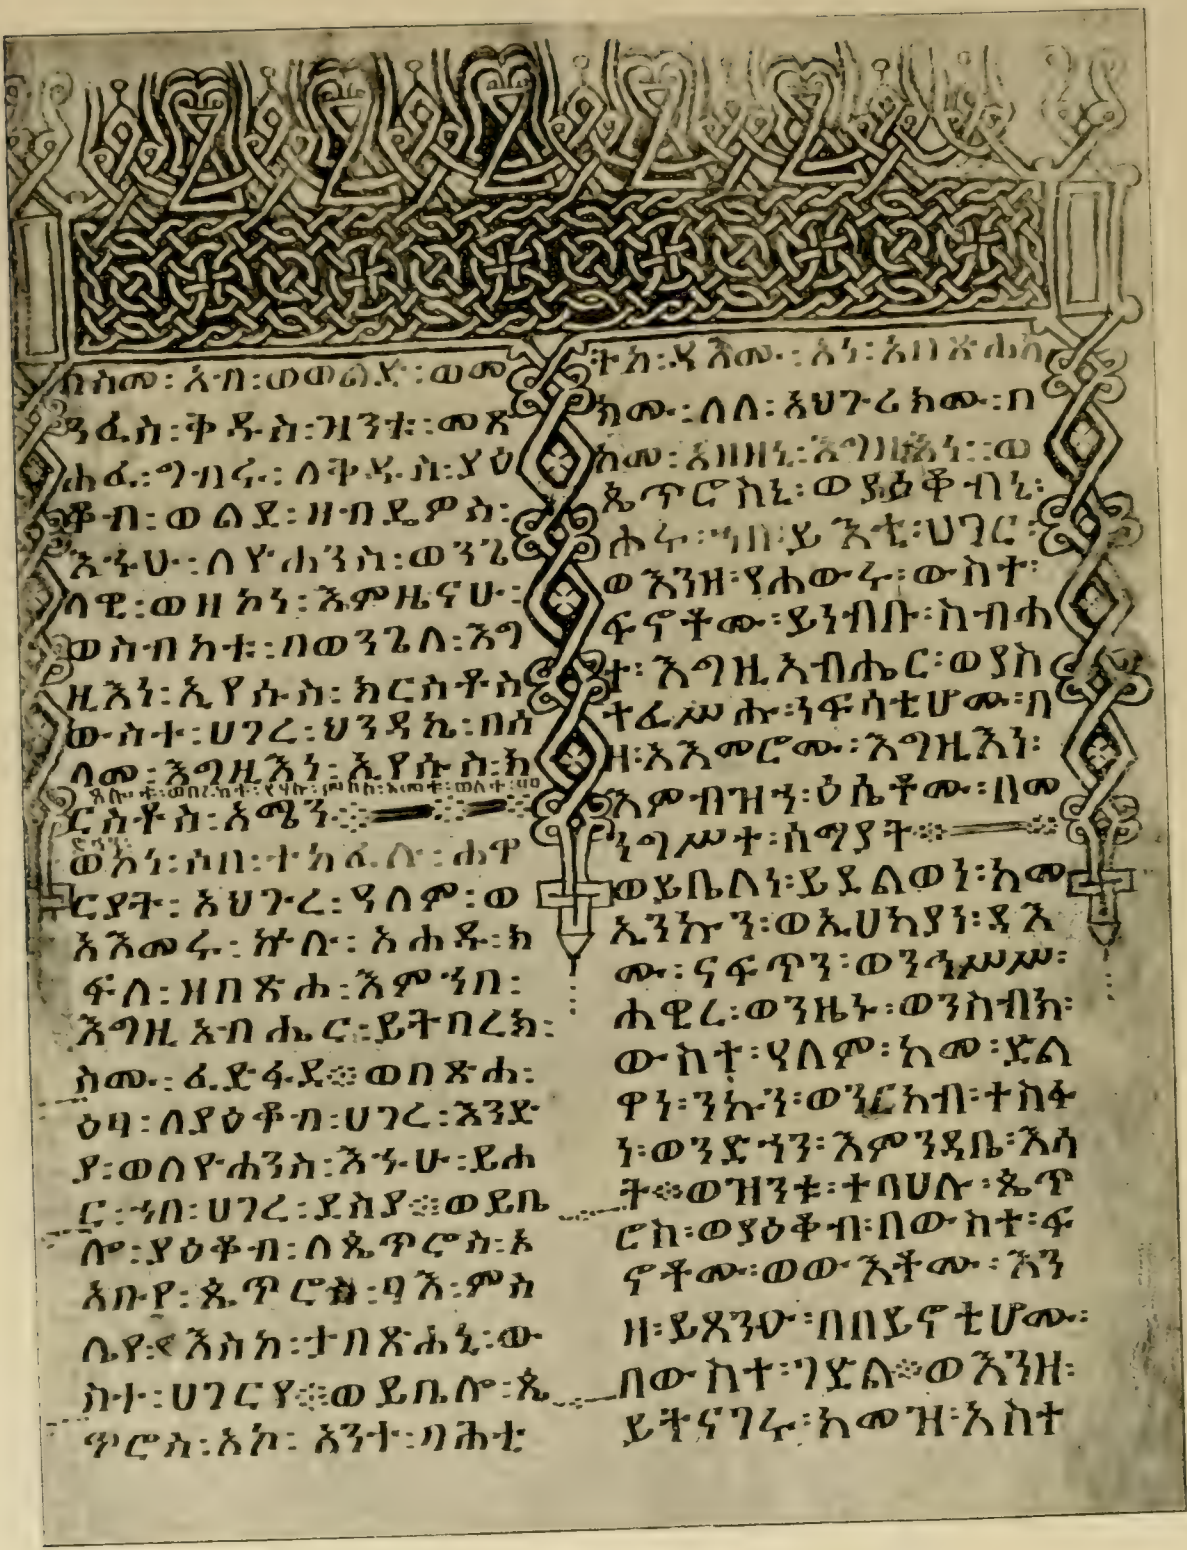 በስመ፡ አብ፡ወወልድ፡ወመ
ንፈስ፡ቅዱስ፡ዝንቱ፡መጽ
ሐፈ፡ግብሩ፡ ለቅዱስ፡ያዕ
ቆብ፡ ወልደ፡ ዘብዴዎስ፡
እኁሁ፡ ለዮሐንስ፡ወንጌ
ላዊ፡ወዘኮነ፡እምዜናሁ፡
ወስብከቱ፡በወንጌለ፡እግ
ዚእነ፡ ኢየሱስ፡ ክርስቶስ
ውስተ፡ሀገረ፡ህንዳኬ፡በሰ
ላመ፡እግዚእነ፡ኢየሱስ፡ክ
ርስቶስ፡አሜን።
ወኮነ፡ሶበ፡ተካፈሉ፡ሐዋ
ርያት፡ አህጉረ፡ ዓለም፡ወ
አእመሩ፡ ኵሉ፡ አሐዱ፡ክ
ፍለ፡ዘበጽሐ፡እምኀበ፡
እግዚአብሔር፡ይትባረክ፡
ስሙ፡ ፈድፋደ።ወበጽሐ፡
ዕፃ፡ ለያዕቆብ፡ሀገረ፡እንድ
ያ፡ወለዮሐንስ፡እኁሁ፡ይሐ
ር፡ኀበ፡ሀገረ፡ደስያ።ወይቤ
ሎ፡ያዕቆብ፡ለጴጥሮስ፡ኦ
አቡየ፡ጴጥሮስ፡ባእ፡ምስ
ሌየ፡እስከ፡ታበጽሐኒ፡ው
ስተ፡ሀገርየ።ወይቤሎ፡ጴ
ጥሮስ፡አኮ፡ አንተ፡ባሕቲ
ትከ፡ዳእሙ፡አነ፡አበጽሐ
ክሙ፡ለለ፡አህጉሪክሙ፡በ
ከመ፡አዘዘኒ፡እግዚእነ፡ወ
ጴጥሮስኒ፡ወያዕቆብኒ፡
ሖሩ፡ኀበ፡ይእቲ፡ሀገር፡
ወእንዘ፡የሐውሩ፡ውስተ፡
ፍኖቶሙ፡ይነብቡ፡ስብሐ
ተ፡እግዚአብሔር፡ወያስ
ተፌሥሑ፡ነፍሳቲሆሙ፡በ
ዘ፡አእመሮሙ፡እግዚእነ፡
እምብዝኀ፡ዕሴቶሙ፡በመ
ንግሥተ፡ሰማያት።
ወይቤለነ፡ይደልወነ፡ከመ
ኢንኩን፡ወኢሀካያነ፡ዳእ
ሙ፡ናፍጥን፡ወንኅሥሥ፡
ሐዊረ፡ወንዜኑ፡ወንስብክ፡
ውስተ፡ዓለም፡ከመ፡ድል
ዋነ፡ንኩን፡ወንርከብ፡ተስፋ
ነ፡ወንድኀን፡እምንዳቤ፡እሳ
ት።ወዝንቱ፡ተባህሉ፡ጴጥ
ሮስ፡ወያዕቆብ፡በውስተ፡ፍ
ኖቶሙ፡ወውእቶሙ፡እን
ዘ፡ይጸንዑ፡በበይኖቲሆሙ፡
በውስተ፡ገድል።ወእንዘ፡
ይትናገሩ፡ከመዝ፡አስተ